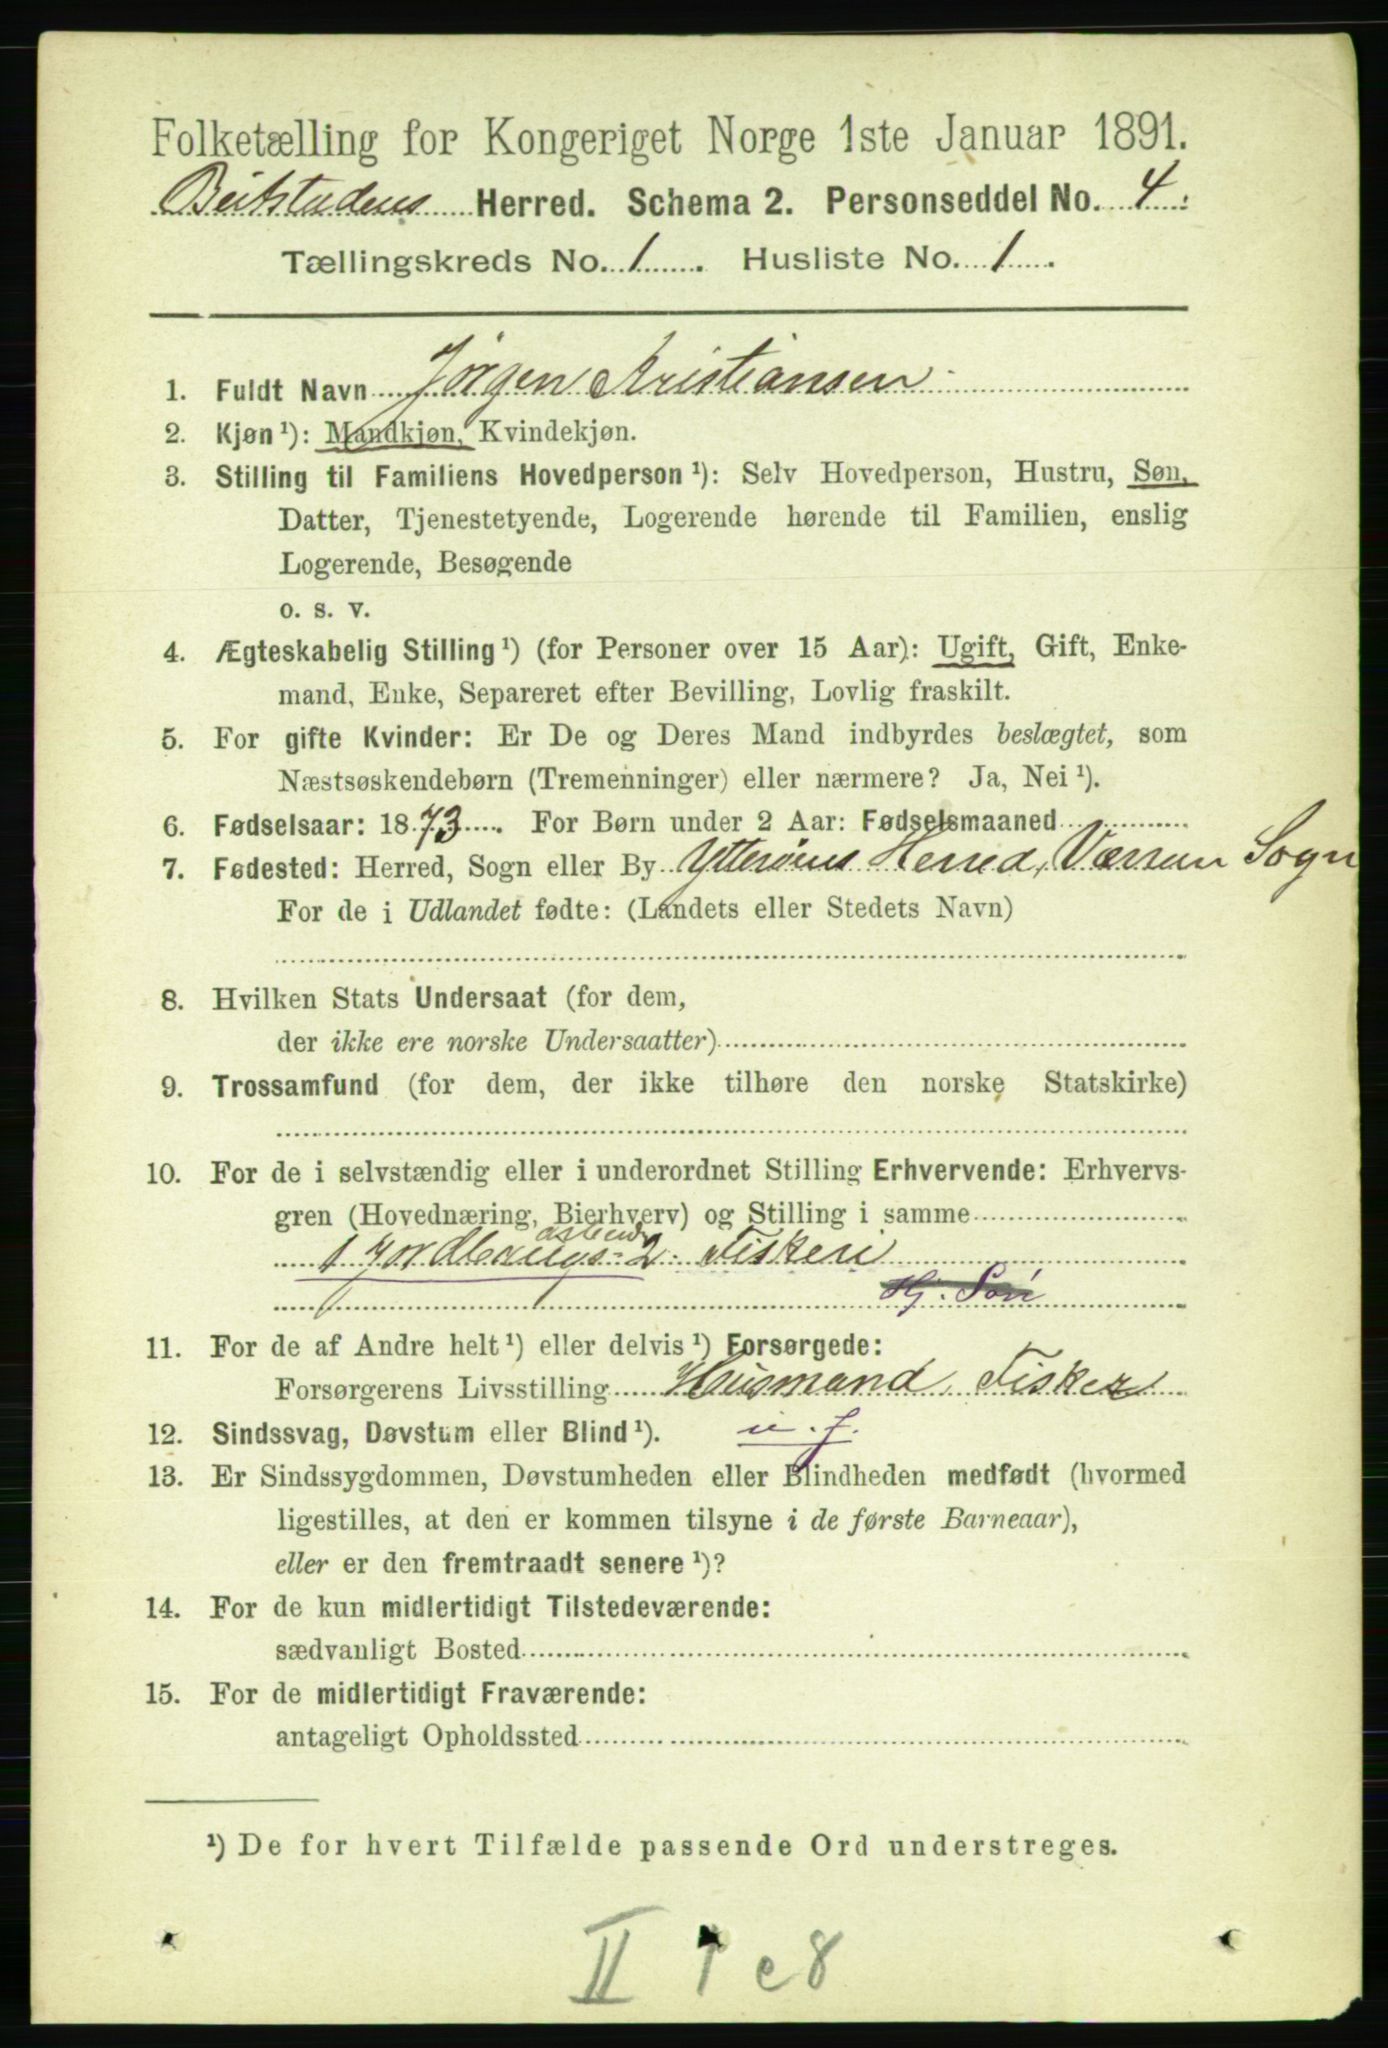 Folketælling for Kongeriget Norge 1ste Januar 1891.
Beitstadens Herred. Schema 2. Personseddel No. 4.
Tællingskreds No. 1. Husliste No. 1.
1. Fuldt Navn Jörgen Kristiansen
2. Kjøn ¹): Mandkjøn, Kvindekjøn.
3. Stilling til Familiens Hovedperson ¹): Selv Hovedperson, Hustru, Søn,
Datter, Tjenestetyende, Logerende hørende til Familien, enslig
Logerende, Besøgende
o. s. v.
4. Ægteskabelig Stilling ¹) (for Personer over 15 Aar): Ugift, Gift, Enke-
mand, Enke, Separeret efter Bevilling, Lovlig fraskilt.
5. For gifte Kvinder: Er De og Deres Mand indbyrdes beslægtet, som
Næstsøskendebørn (Tremenninger) eller nærmere? Ja, Nei ¹).
6. Fødselsaar: 1873. For Børn under 2 Aar: Fødselsmaaned
7. Fødested: Herred, Sogn eller By Ytterøens Herred, Værran Sogn
For de i Udlandet fødte: (Landets eller Stedets Navn)
8. Hvilken Stats Undersaat (for dem,
der ikke ere norske Undersaatter)
9. Trossamfund (for dem, der ikke tilhøre den norske Statskirke)
10. For de i selvstændig eller i underordnet Stilling Erhvervende: Erhvervs-
gren (Hovednæring, Bierhverv) og Stilling i samme
arbeide
1 Jordbrugs- 2. Fiskeri
Hj. Søn
11. For de af Andre helt ¹) eller delvis ¹) Forsørgede:
Forsørgerens Livsstilling Husmand, Fisker
12. Sindssvag, Døvstum eller Blind ¹). u. f.
13. Er Sindssygdommen, Døvstumheden eller Blindheden medfødt (hvormed
ligestilles, at den er kommen tilsyne i de første Barneaar),
eller er den fremtraadt senere ¹)?
14. For de kun midlertidigt Tilstedeværende:
sædvanligt Bosted
15. For de midlertidigt Fraværende:
antageligt Opholdssted
¹) De for hvert Tilfælde passende Ord understreges.
II 1 e8